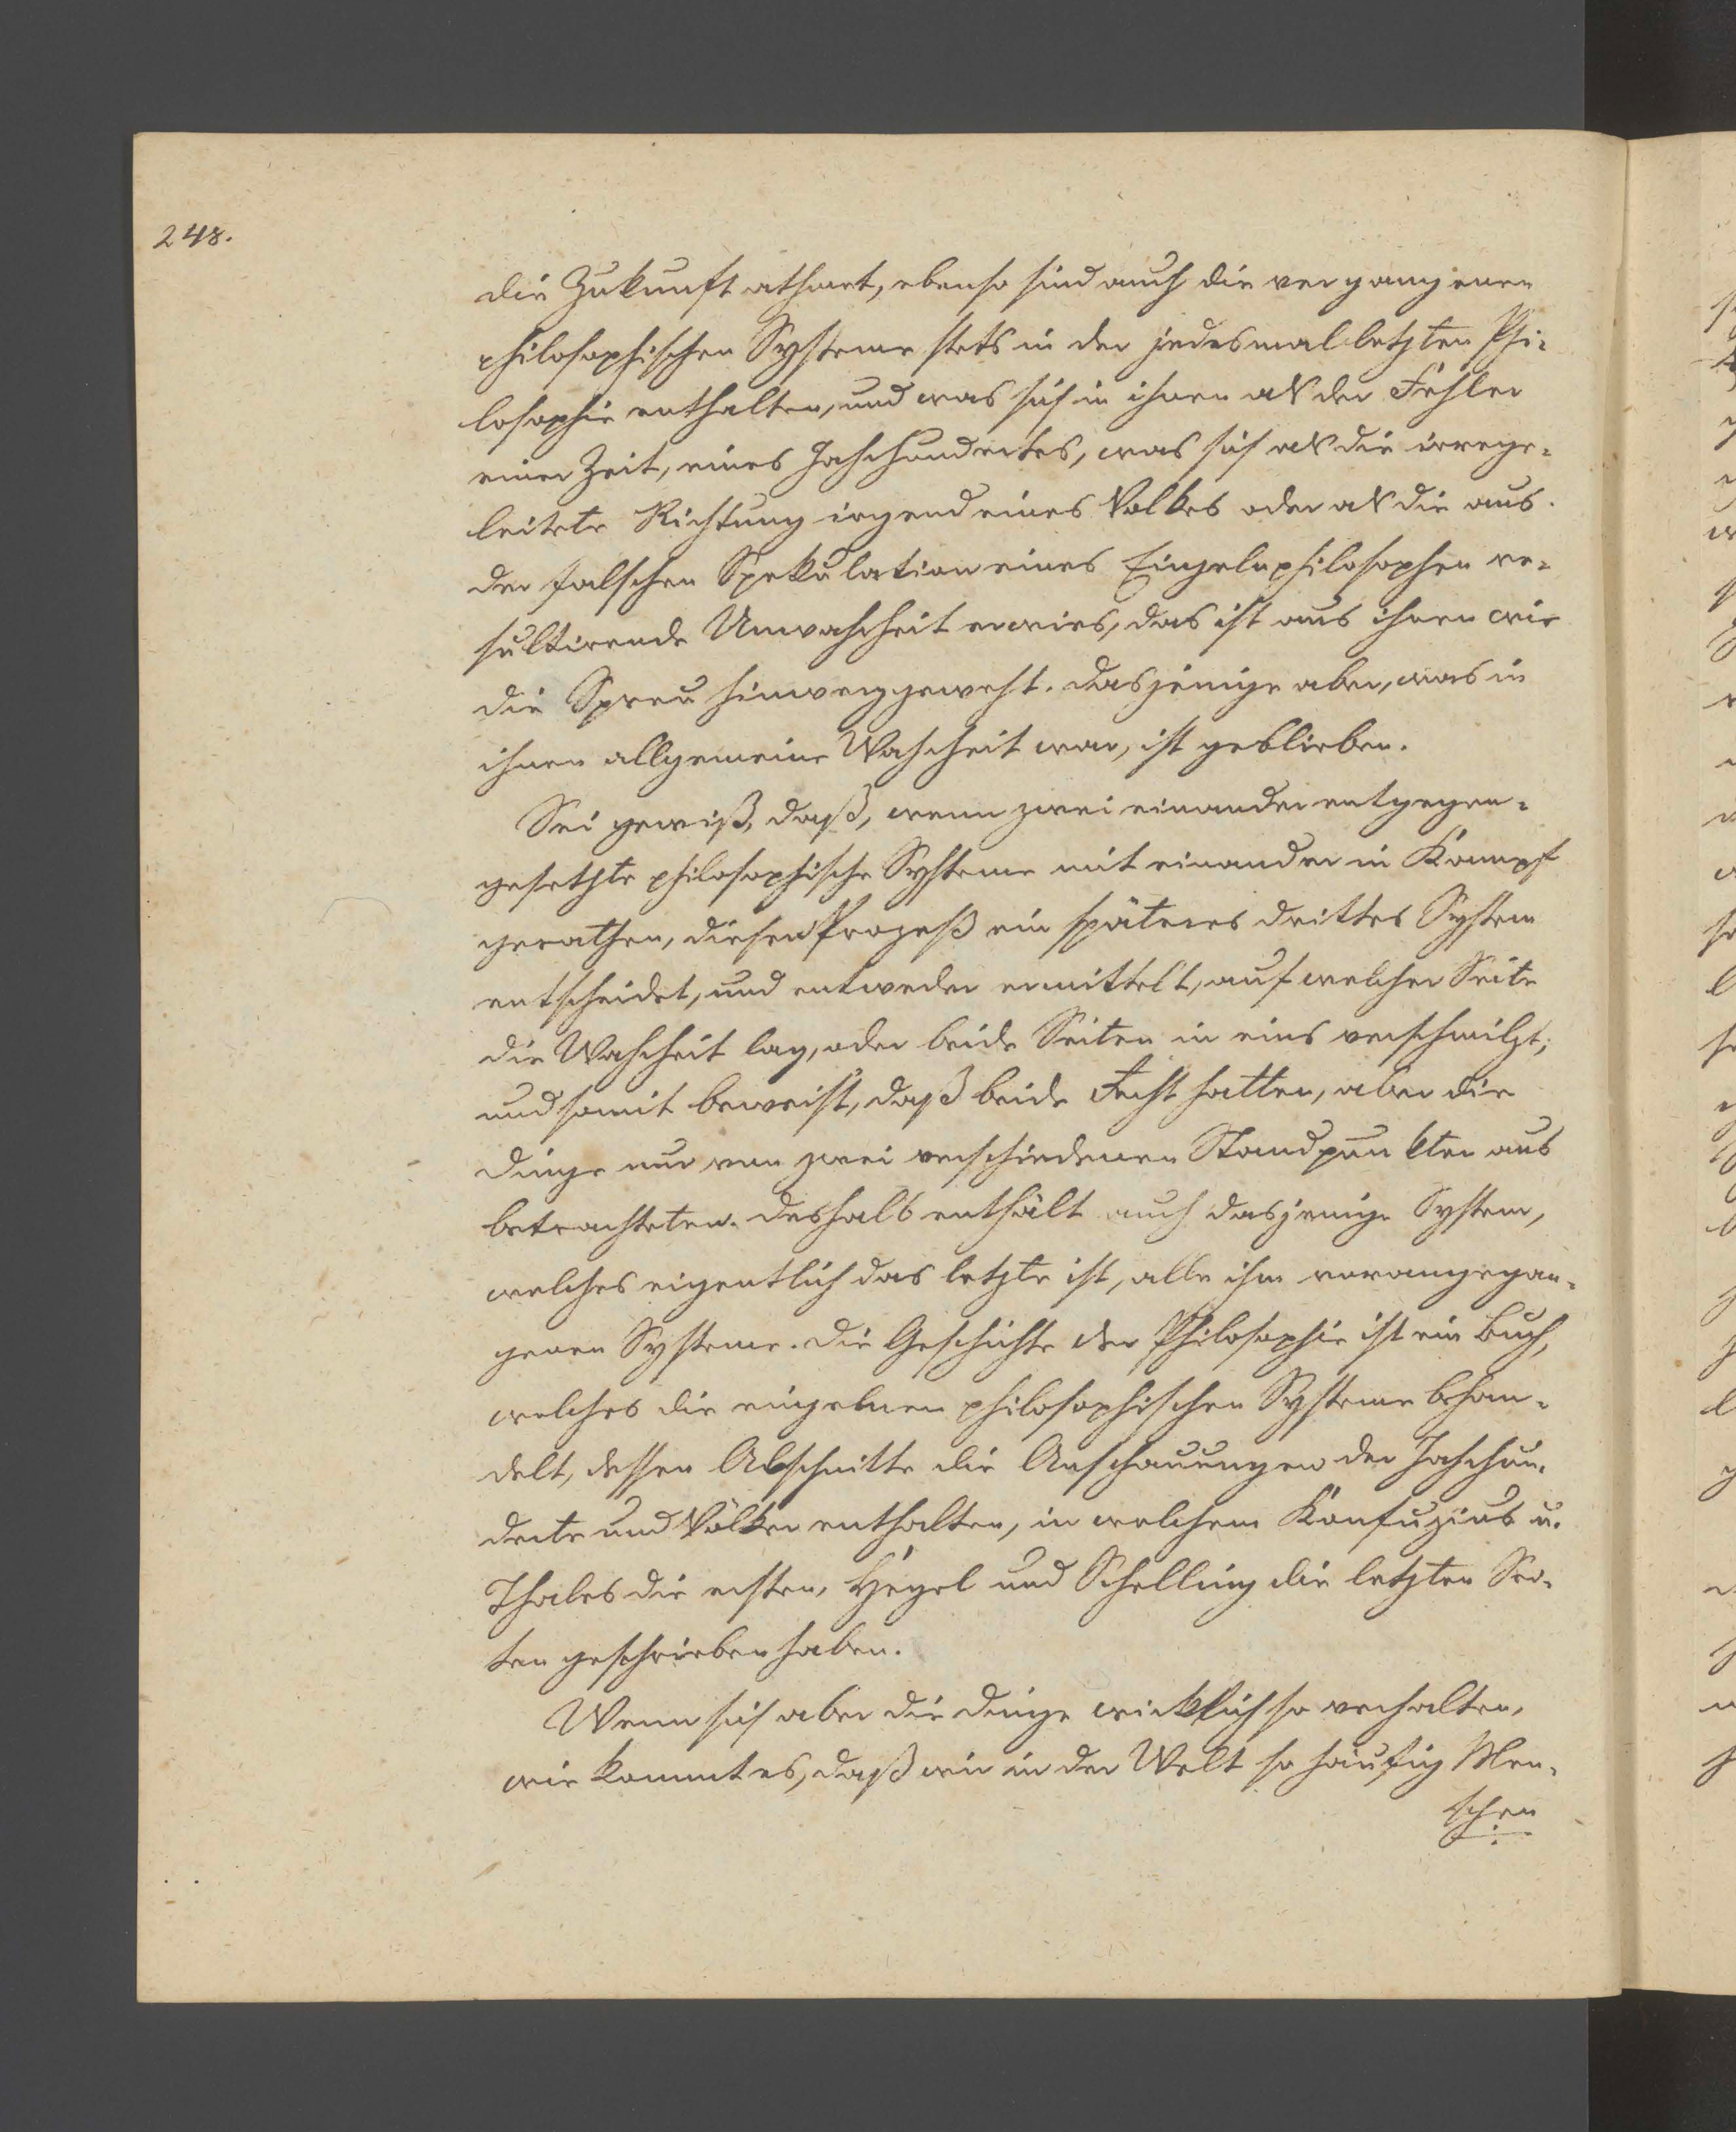 248.
die Zukunft athmet, ebenso sind auch die vergangenen
philosophischen Systeme stets in der jedesmal letzten Phi-
losophie enthalten, und was sich in ihnen als der Fehler
einer Zeit, eines Jahrhundertes, was sich als die irrege-
leitete Richtung irgend eines Volkes oder als die aus
der falschen Spekulation eines Einzelnphilosophen re-
sultirende Unwahrheit erwies, das ist aus ihnen wie
die Spreu hinweggeweht. Dasjenige aber, was in
ihnen allgemeine Wahrheit war, ist geblieben.
Sei gewiß, daß, wenn zwei einander entgegen-
gesetzte philosophische Systeme mit einander in Kampf
gerathen, diesen Prozeß ein späteres drittes System
entscheidet, und entweder ermittelt, auf welcher Seite
die Wahrheit lag, oder beide Seiten in eins verschmilzt,
und somit beweist, daß beide Recht hatten, aber die
Dinge nur von zwei verschiedenen Standpunkten aus
betrachteten. Deshalb enthält auch dasjenige System,
welches eigentlich das letzte ist, alle ihm vorangegan-
genen Systeme. Die Geschichte der Philosophie ist ein Buch,
welches die einzelnen philosophischen Systeme behan-
delt, dessen Abschnitte die Anschauungen der Jahrhun-
derte und Völker enthalten, in welchem Konfuzius u.
Thales die ersten, Hegel und Schelling die letzten Sei-
ten geschrieben haben.
Wenn sich aber die Dinge wirklich so verhalten,
wie kommt es, daß wir in der Welt so häufig Men-
schen